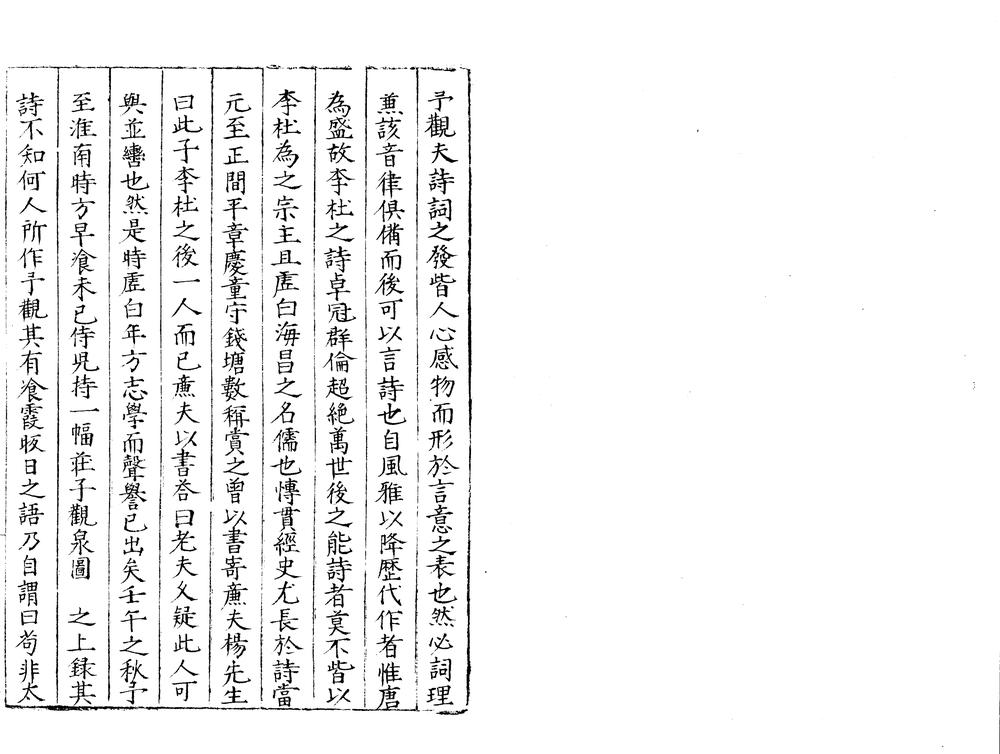 予觀夫詩詞之發皆人心感物而形於言意之表也然必詞理
蕪該音律俱備而後可以言詩也自風雅以降歷代作者惟唐
為盛故李杜之詩卓冠群倫超絶萬世後之能詩者莫不皆以
李杜為之宗主且虛白海昌之名儒也慱貫經史尤長於詩當
元至正間平章慶童守錢塘數稱賞之曾以書寄亷夫楊先生
曰此子李杜之後一人而已亷夫以書荅曰老夫乆疑此人可
與並轡也然是時虛白年方志學而聲譽已出矣壬午之秋予
至淮南時方早飡未已侍児持一幅莊子觀泉圖 之上録其
詩不知何人所作予觀其有飡霞昄日之語乃自謂曰苟非太